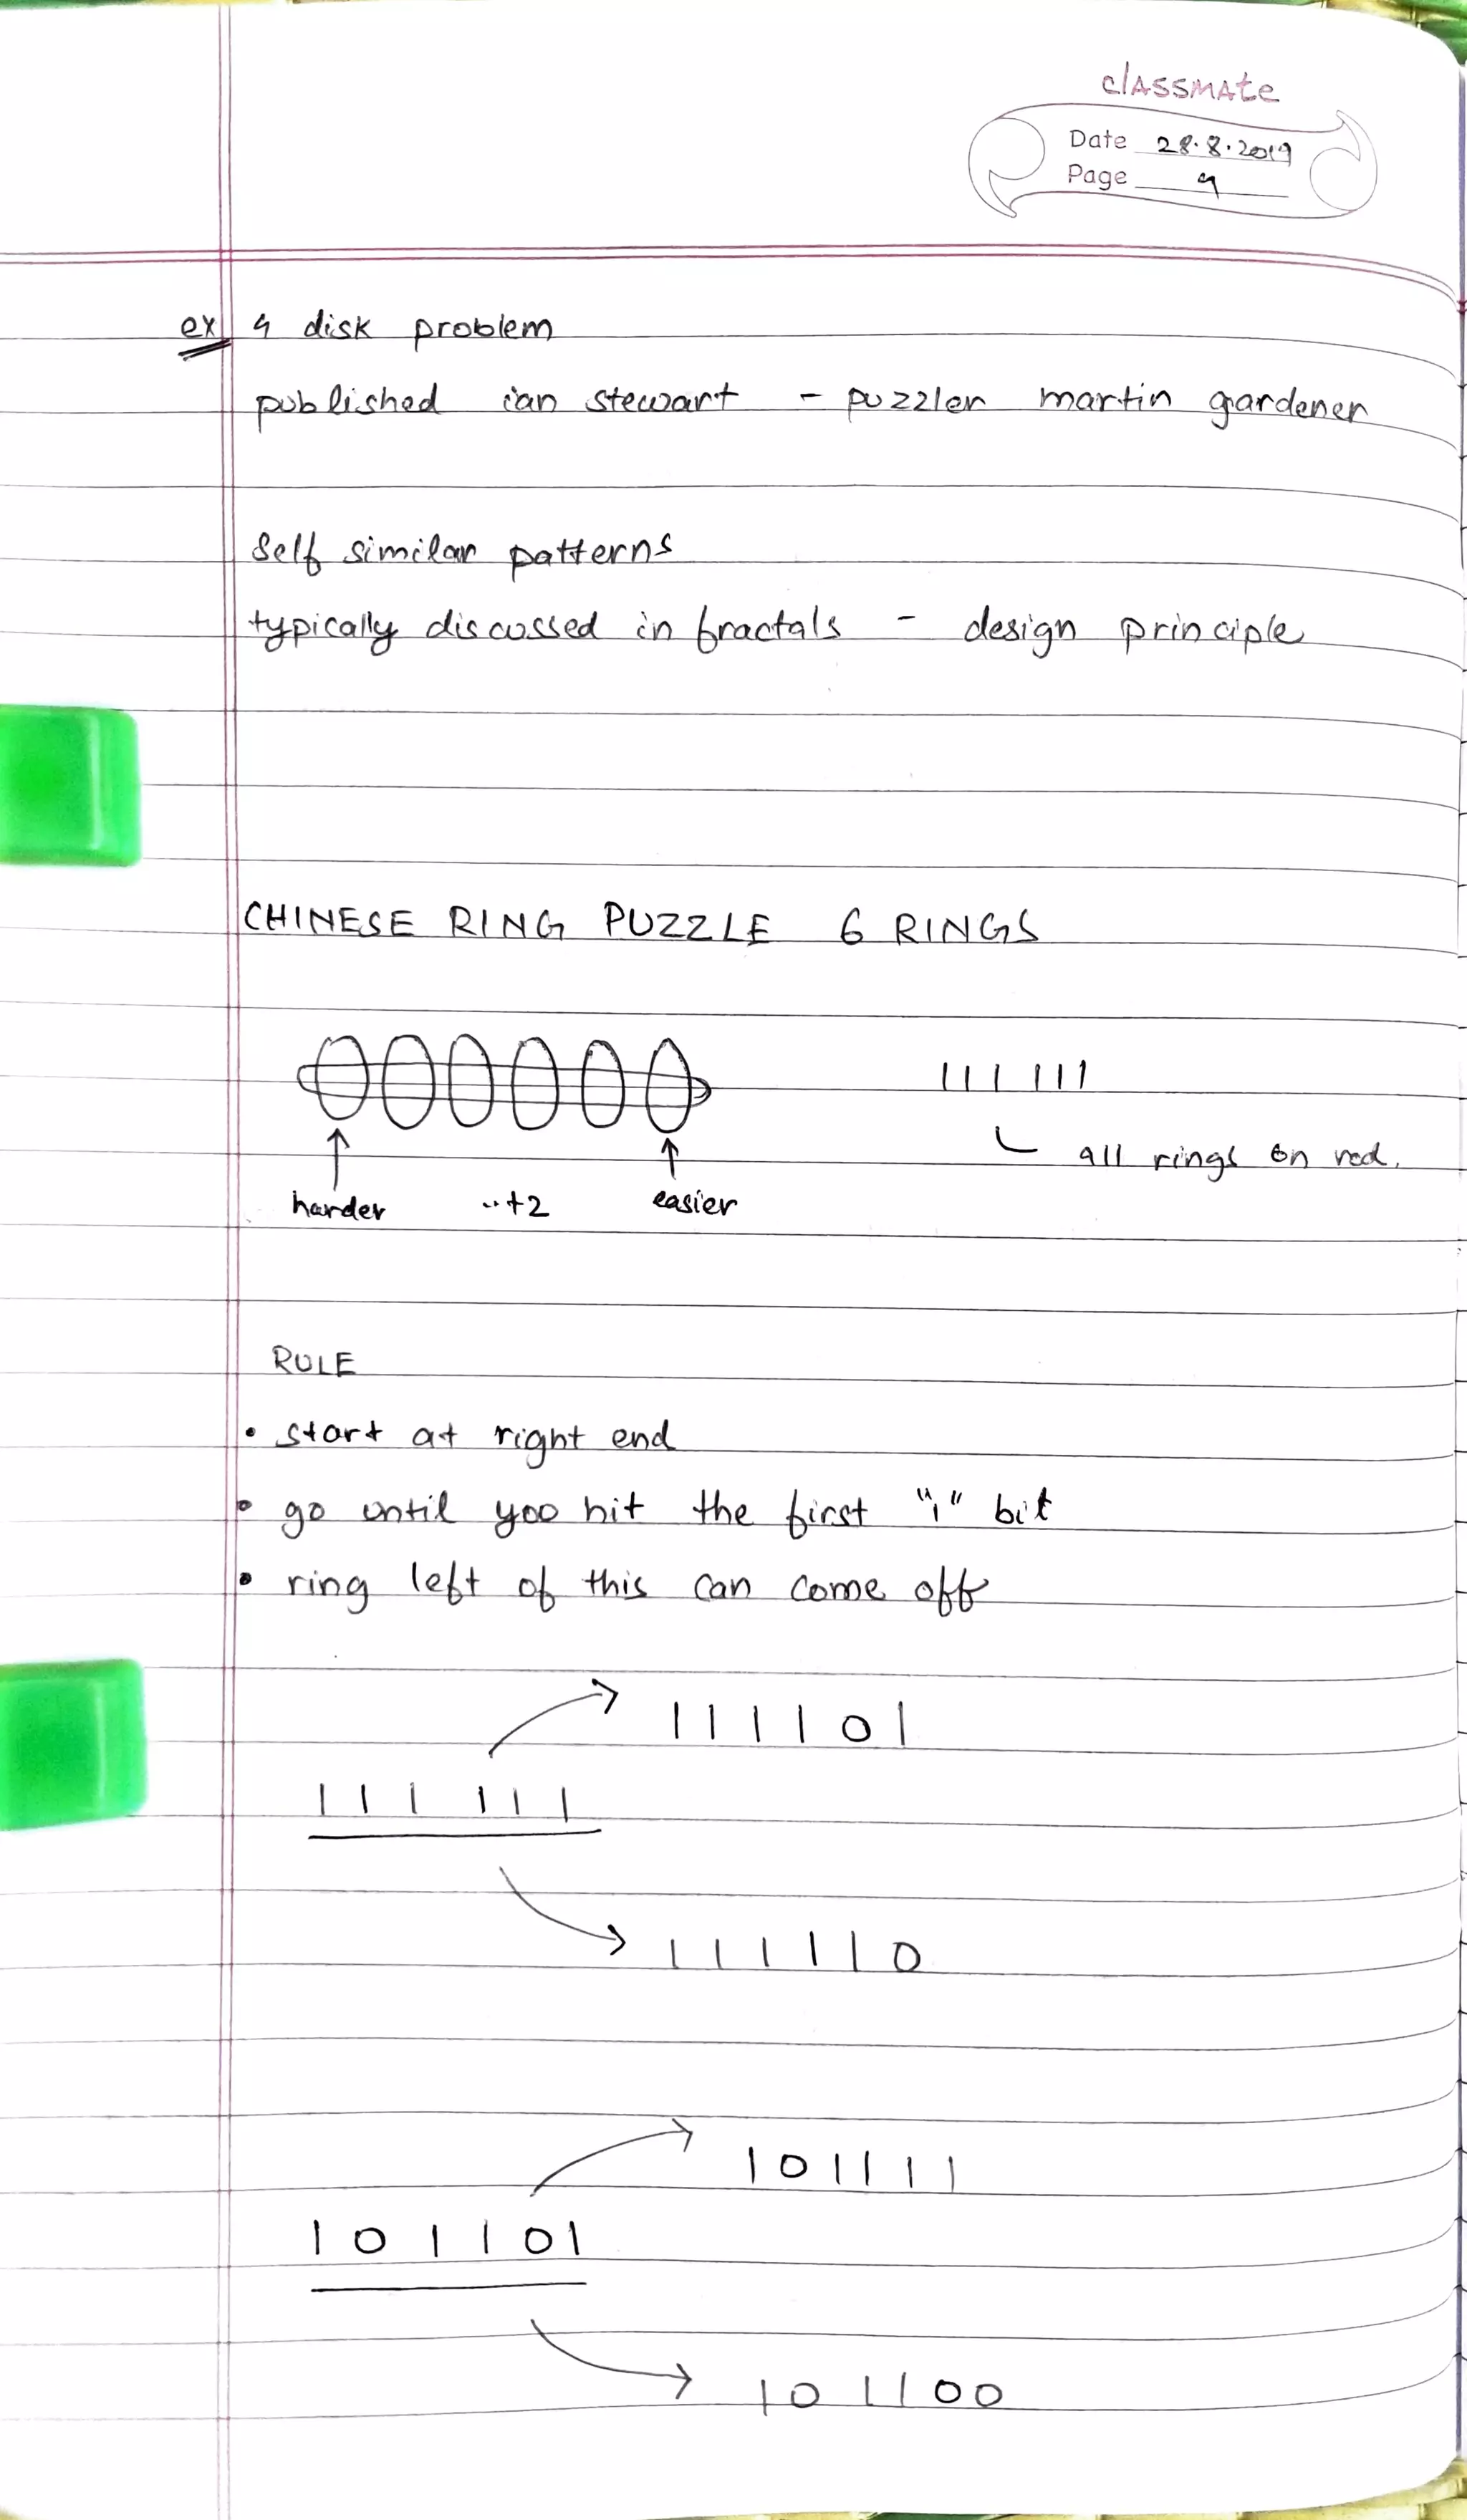 classmate
Date 28.8.2019
Page 9
ex 4 disk problem
published ian stewart - puzzler martin gardener
Self similar patterns
typically discussed in fractals - design principle
CHINESE RING PUZZLE 6 RINGS
111 111
all rings on rod.
harder ..+2 easier
RULE
• start at right end
• go until you hit the first "1" bit
• ring left of this can come off
111101
111 111
111110
101111
101101
101100